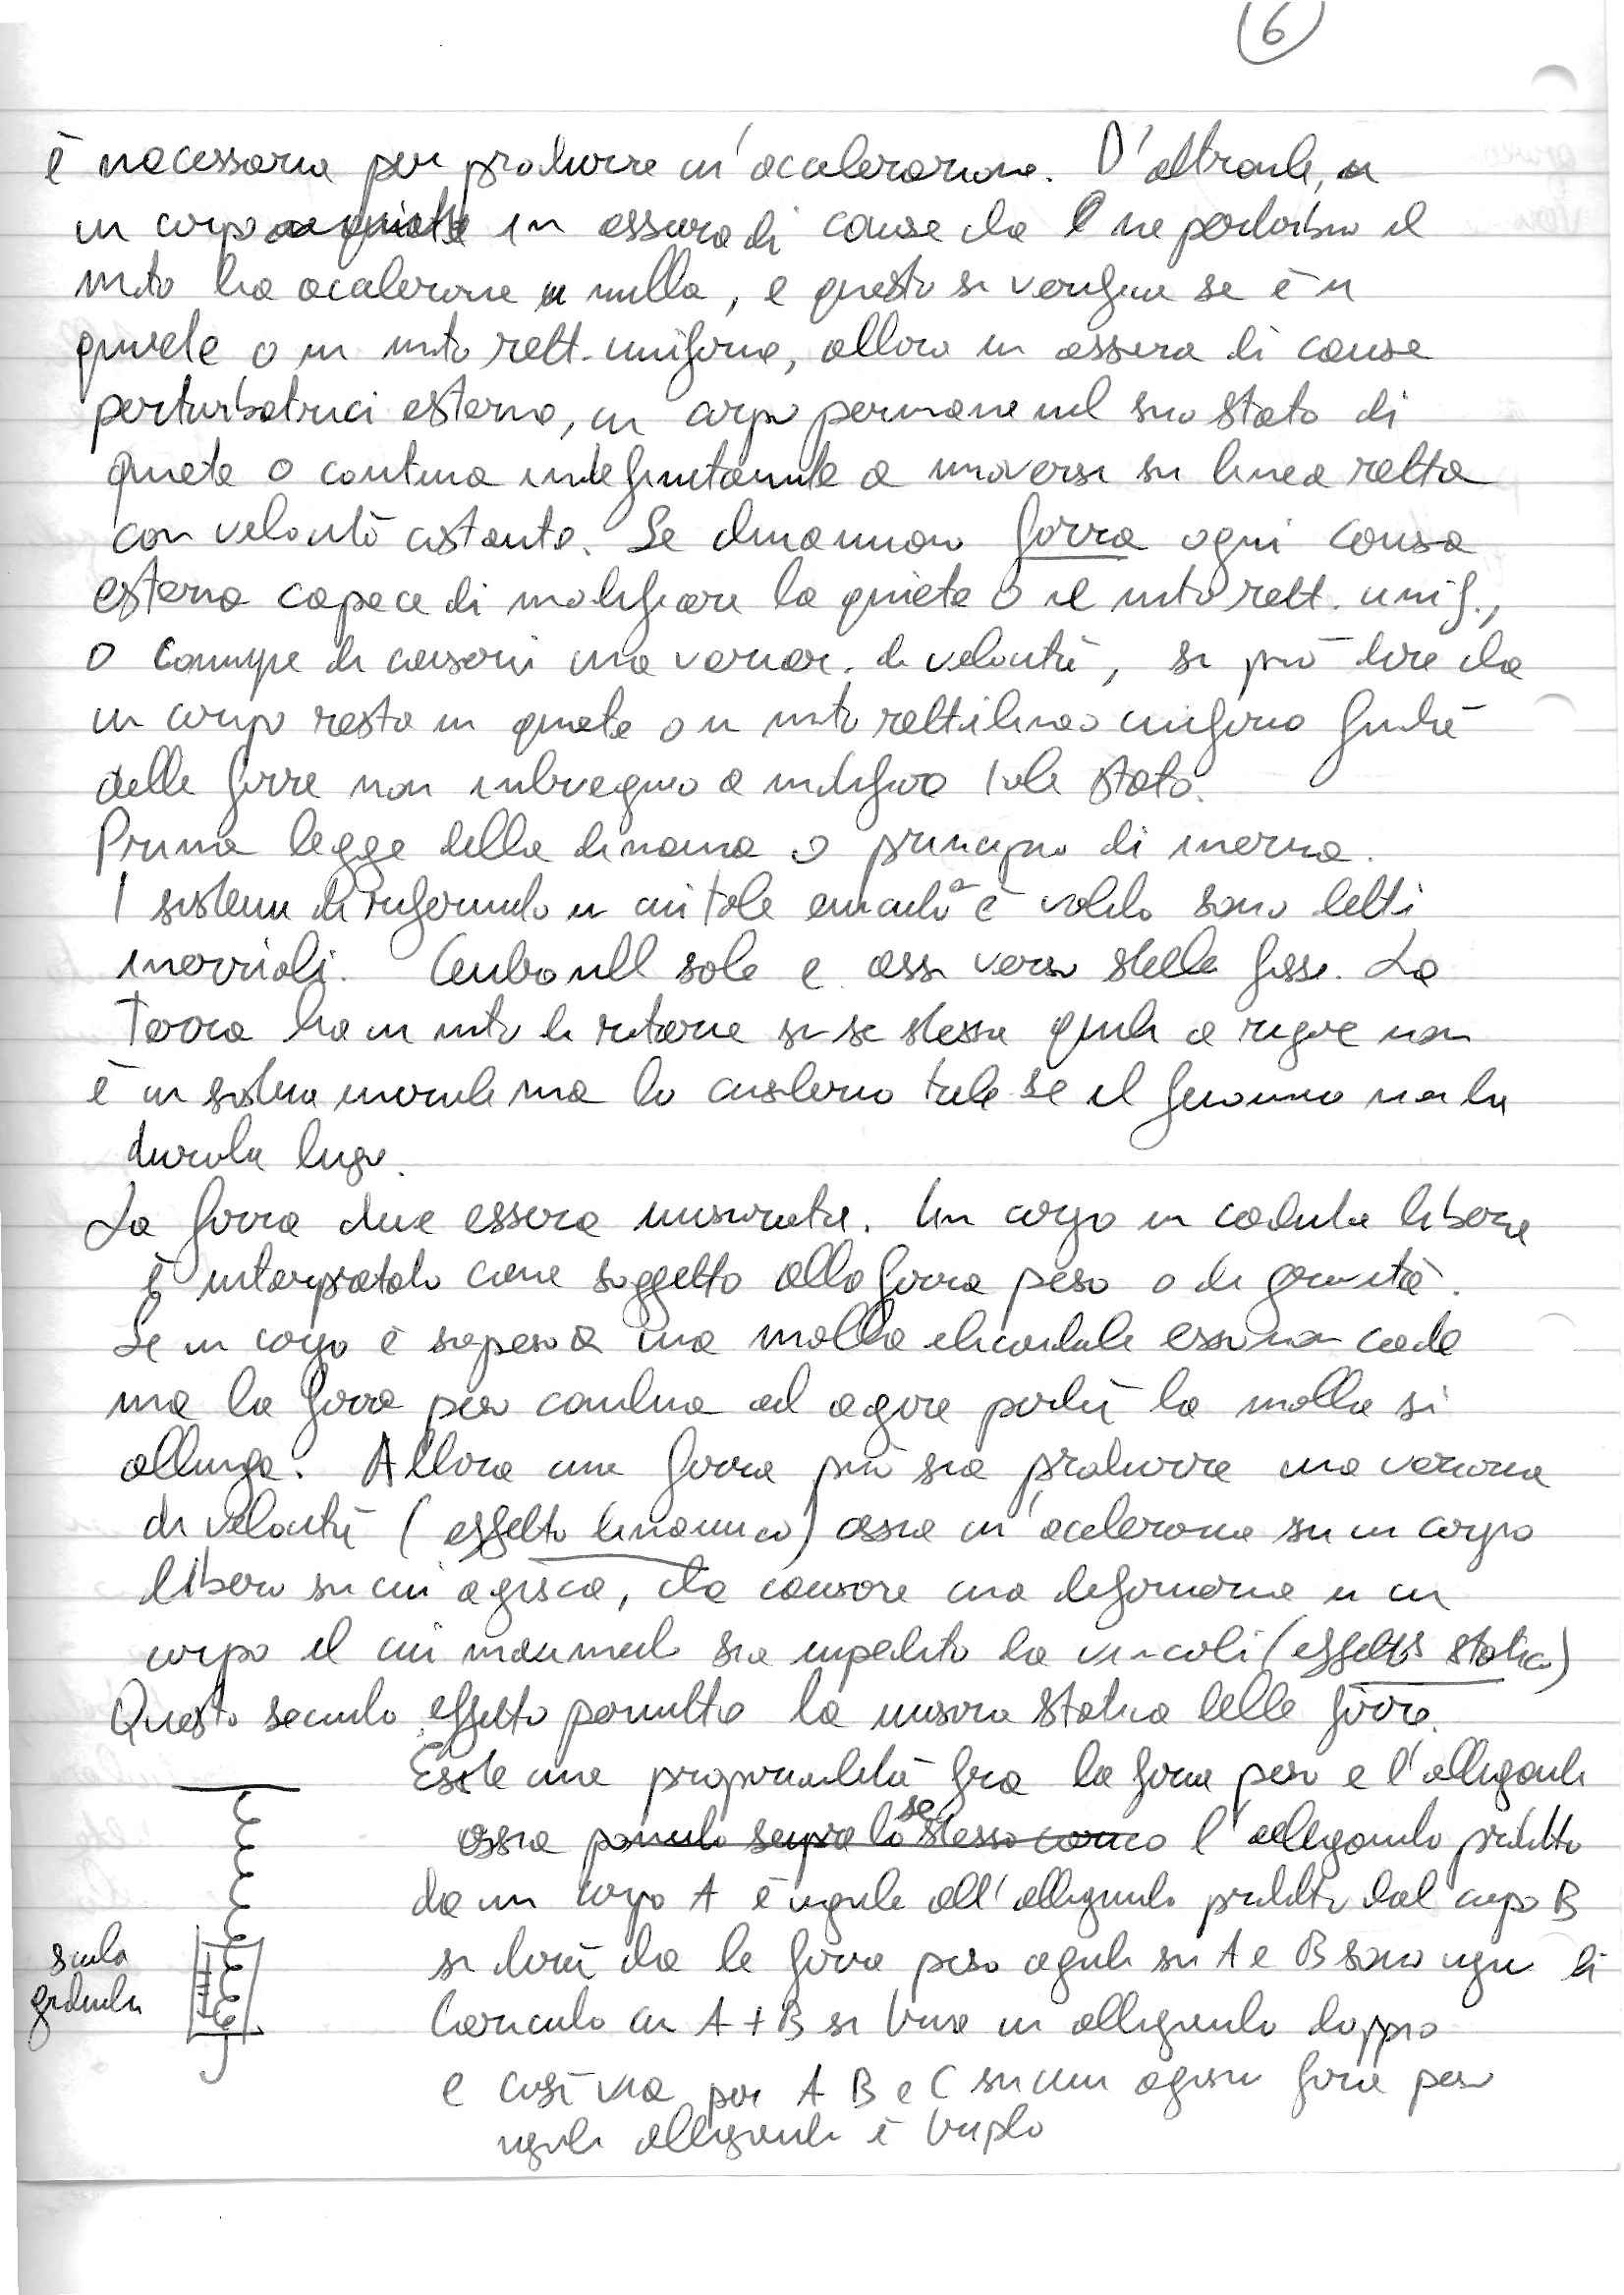 6
è necessaria per produrre un'accelerazione. D'altronde,
un corpo in assenza di cause che ne perturbino il
moto ha accelerazione nulla, e questo si verifica se è in
quiete o in moto rett. uniforme, allora in assenza di cause
perturbatrici esterne, un corpo permane nel suo stato di
quiete o continua indefinitamente a muoversi su linea retta
con velocità costante. Se chiamiamo forza ogni causa
esterna capace di modificare la quiete o il moto rett. unif.,
o comunque di causarvi una variaz. di velocità, si può dire che
un corpo resta in quiete o in moto rettilineo uniforme finché
delle forze non intervengono a modificare tale stato.
Prima legge della dinamica o principio di inerzia.
I sistemi di riferimento in cui tale enunciato è valido sono detti
inerziali. Centro nel sole e assi verso stelle fisse. La
Terra ha un moto di rotazione su se stessa quindi a rigore non
è un sistema inerziale ma lo consideriamo tale se il fenomeno non ha
durata lunga.
La forza deve essere misurata. Un corpo in caduta libera
è interpretato come soggetto alla forza peso o di gravità.
Se un corpo è sospeso a una molla elicoidale esso non cade
ma la forza peso continua ad agire perché la molla si
allunga. Allora una forza può sia produrre una variazione
di velocità (effetto dinamico) ossia un'accelerazione su un corpo
libero su cui agisca, che causare una deformazione in un
corpo il cui movimento sia impedito da vincoli (effetto statico)
Questo secondo effetto permette la misura statica delle forze.
Esiste una proporzionalità fra la forza peso e l'allungamento
ossia ponendo sempre lo stesso carico se l'allungamento prodotto
da un corpo A è uguale all'allungamento prodotto dal corpo B
si dirà che le forze peso agenti su A e B sono uguali
Caricando con A + B si trova un allungamento doppio
e così via per A B e C su cui agisce forza peso
uguale allungamento è triplo
scala
graduata